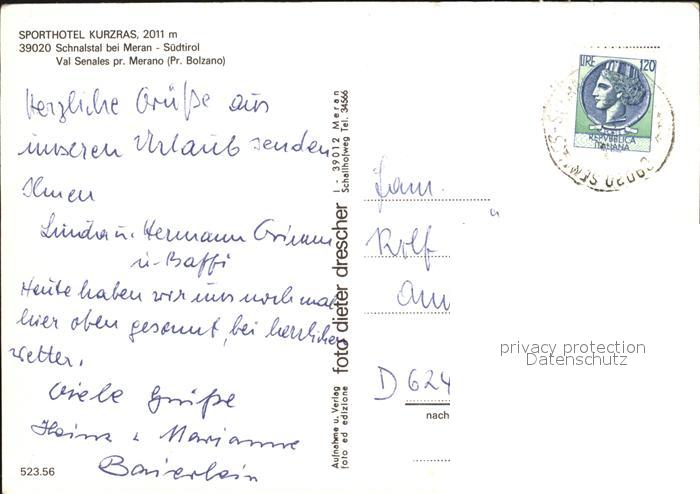 SPORTHOTEL KURZRAS, 2011 m
39020 Schnalstal bei Meran - Südtirol
Val Senales pr. Merano (Pr. Bolzano)
Herzliche Grüße aus
unserem Urlaub senden
Ihnen
Linda u. Hermann Grimm
u. Baffi
Heute haben wir uns noch mal
hier oben gesonnt, bei herrlichen
Wetter.
Viele Grüße
Heinz & Marianne
Baierlein
523.56
Aufnahme u. Verlag foto dieter drescher I - 39012 Meran
foto ed edizione Schallhofweg Tel. 34566
LIRE 120
REPVBBLICA
ITALIANA
39020 SENALES
Fam.
Rolf
Am
D 624
nach
privacy protection
Datenschutz